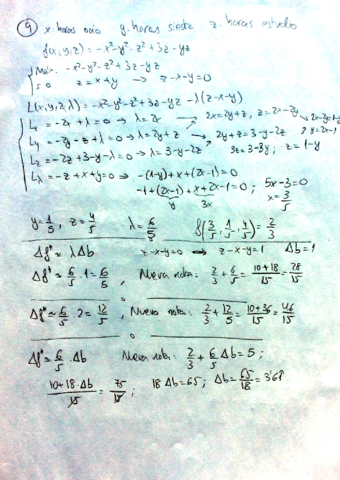 9 x: horas ocio y: horas siesta z: horas estudio
f(x,y,z) = -x²-y²-z²+3z-yz
Max. -x²-y²-z²+3z-yz
s.a. z=x+y → z-x-y=0
L(x,y,z,λ) = -x²-y²-z²+3z-yz-λ(z-x-y)
Lx = -2x+λ=0 → λ=2x 2x=2y+z, z=2x-2y
Ly = -2y-z+λ=0 → λ=2y+z 2y+z=3-y-2z y=2x-1
Lz = -2z+3-y-λ=0 → λ=3-y-2z 3z=3-3y; z=1-y
Lλ = -z+x+y=0 → -(1-y)+x+(2x-1)=0
-1+(2x-1)+x+2x-1=0; 5x-3=0
y 3x x=3/5
y=1/5, z=4/5 λ=6/5 f(3/5,1/5,4/5)=2/3
Δf*≈λΔb z-x-y=0 → z-x-y=1 Δb=1
Δf*≈6/5·1=6/5, Nueva nota: 2/3+6/5=10+18/15=28/15
Δf*≈6/5·2=12/5, Nueva nota: 2/3+12/5=10+36/15=46/15
Δf*≈6/5·Δb Nueva nota: 2/3+6/5Δb=5;
10+18·Δb/15=75/15; 18Δb=65; Δb=65/18=3'61